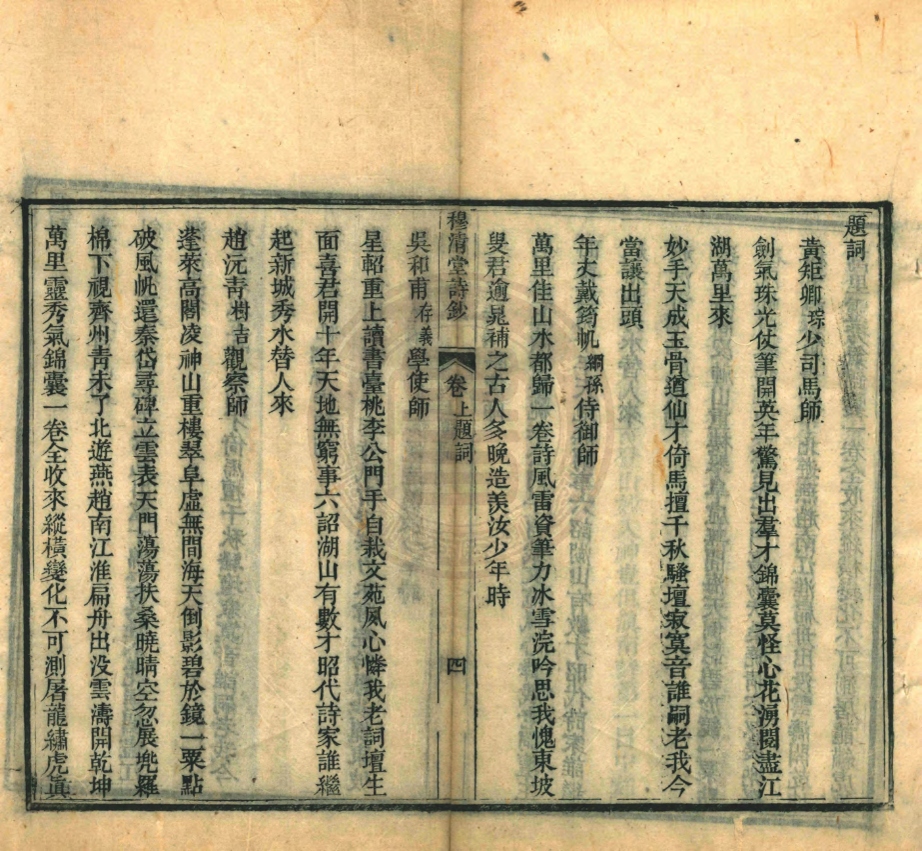 題詞
黃矩卿琮少司馬師
劍氣珠光仗筆開英年驚見出羣才錦囊莫怪心花湧閱盡江
湖萬里來
妙手天成玉骨遒仙才倚馬擅千秋騷壇寂寞音誰嗣老我今
當讓出頭
年丈戴筠帆絅孫侍御師
萬里佳山水都歸一卷詩風雷資筆力冰雪浣吟思我愧東坡
叟君逾晁補之古人多晚造羨汝少年時
穆清堂詩鈔
卷上題詞
四
吳和甫存義學使師
星軺重上讀書臺桃李公門手自栽文苑夙心憐我老詞壇生
面喜君開十年天地無窮事六詔湖山有數才昭代詩家誰繼
起新城秀水替人來
趙沅青樹吉觀察師
蓬萊高閣凌神山重樓翠阜虛無間海天倒影碧於鏡一粟點
破風帆還秦岱尋碑立雲表天門蕩蕩扶桑曉晴空忽展兜羅
棉下視齊州青未了北遊燕趙南江淮扁舟出沒雲濤開乾坤
萬里靈秀氣錦囊一卷全收來縱橫變化不可測屠龍繡虎真